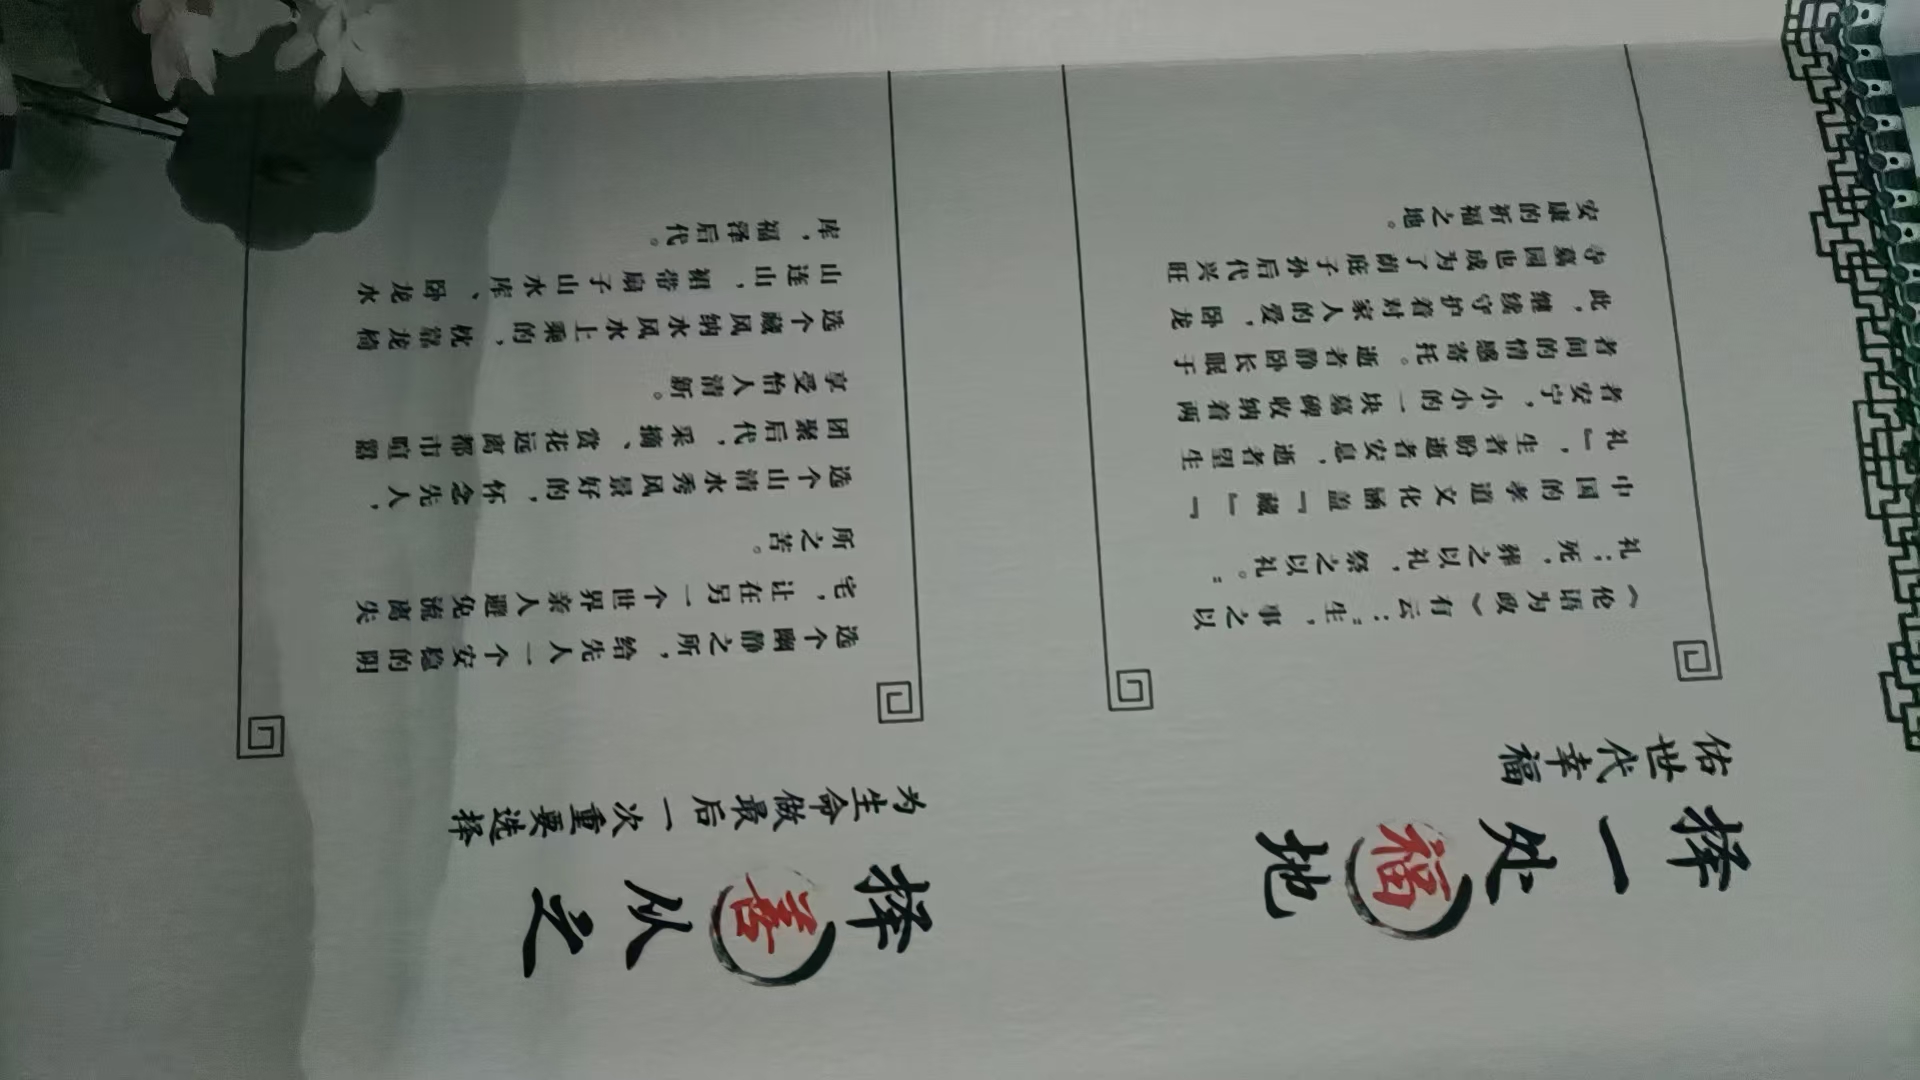 择一处福地
佑世代幸福
《伦语为政》有云：“生，事之以
礼；死，葬之以礼，祭之以礼。”
中国的孝道文化涵盖『藏』『
礼』，生者盼逝者安息，逝者望生
者安宁，小小的一块墓碑收纳着两
者间的情感寄托。逝者静卧长眠于
此，继续守护着对家人的爱，卧龙
寺墓园也成为了荫庇子孙后代兴旺
安康的祈福之地。
择善从之
为生命做最后一次重要选择
选个幽静之所，给先人一个安稳的阴
宅，让在另一个世界亲人避免流离失
所之苦。
选个山清水秀风景好的，怀念先人，
团聚后代，采摘、赏花远离都市喧嚣
享受怡人清新。
选个藏风纳水风水上乘的，枕靠龙椅
山连山，裙带扇子山水库、卧龙水
库，福泽后代。